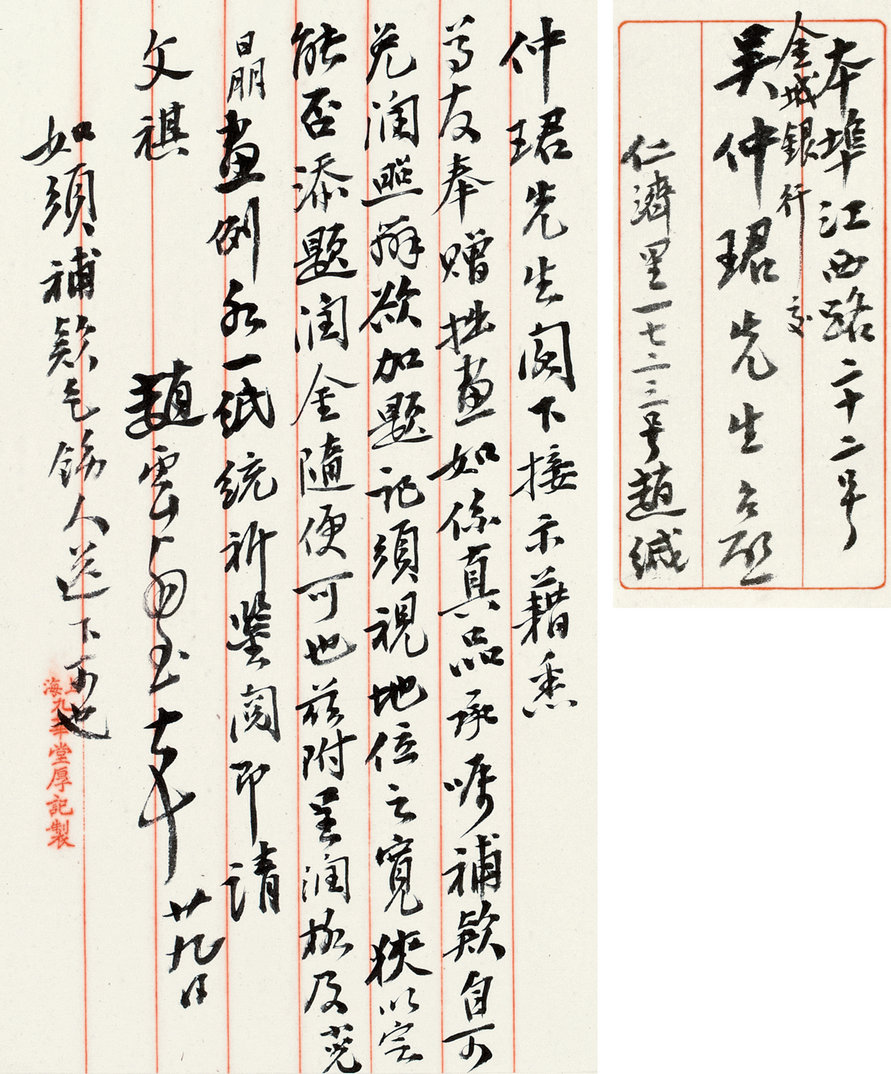 本埠江西路二十二号
金城銀行 交
吴仲珺先生台啟
仁濟里一七二三号趙緘
仲珺先生閣下接示藉悉
尊友奉贈拙畫如係真品承嘱補款自可
免潤照辦欲加題記須視地位之寬狹以定
能否添題潤金隨便可也茲附呈潤格及蒄
朤畫例各一紙統祈鑒閱即請
文祺
趙雲壑 廿九日
如須補款乞飭人送下可也
上海九華堂厚記製